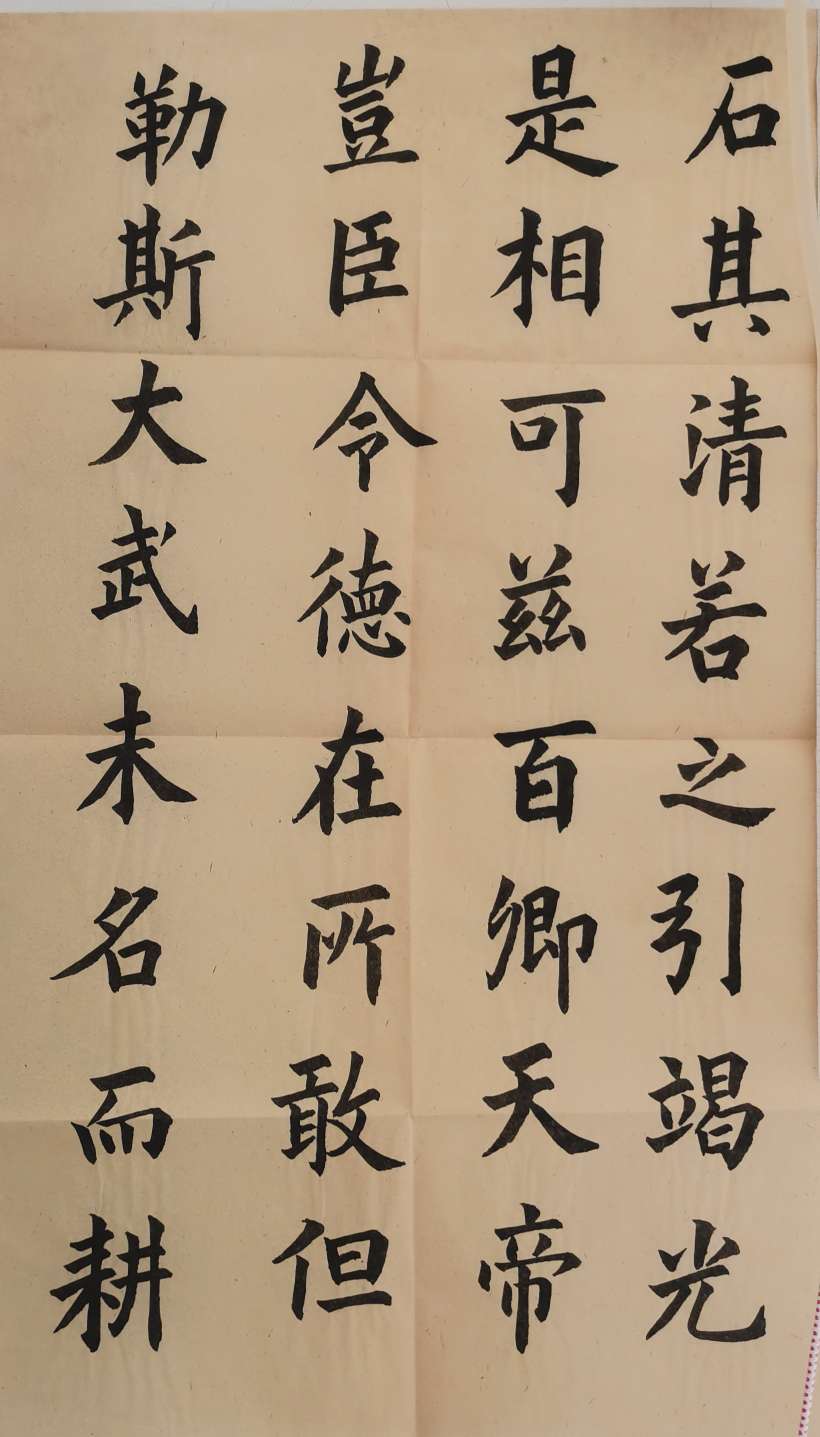 石其清若之引竭光
是相可兹百卿天帝
豈臣令德在所敢但
勒斯大武未名而耕